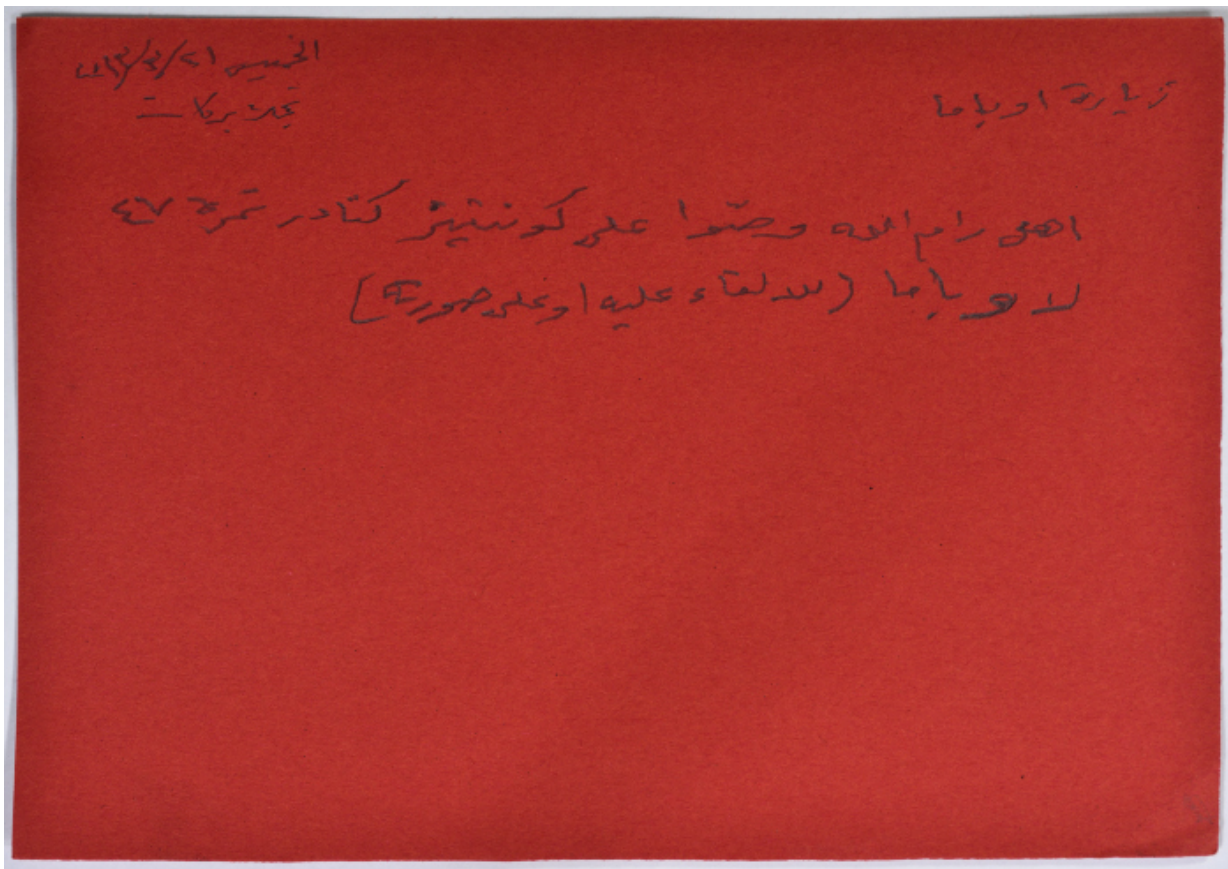 زيارة اوباما
الخميس ٢١/٣/٢٠١٣
نجلاء بركات
اهل رام الله وصّوا على كونتينر كنادر نمرة ٤٧
لاوباما (للالقاء عليه او على صورة)